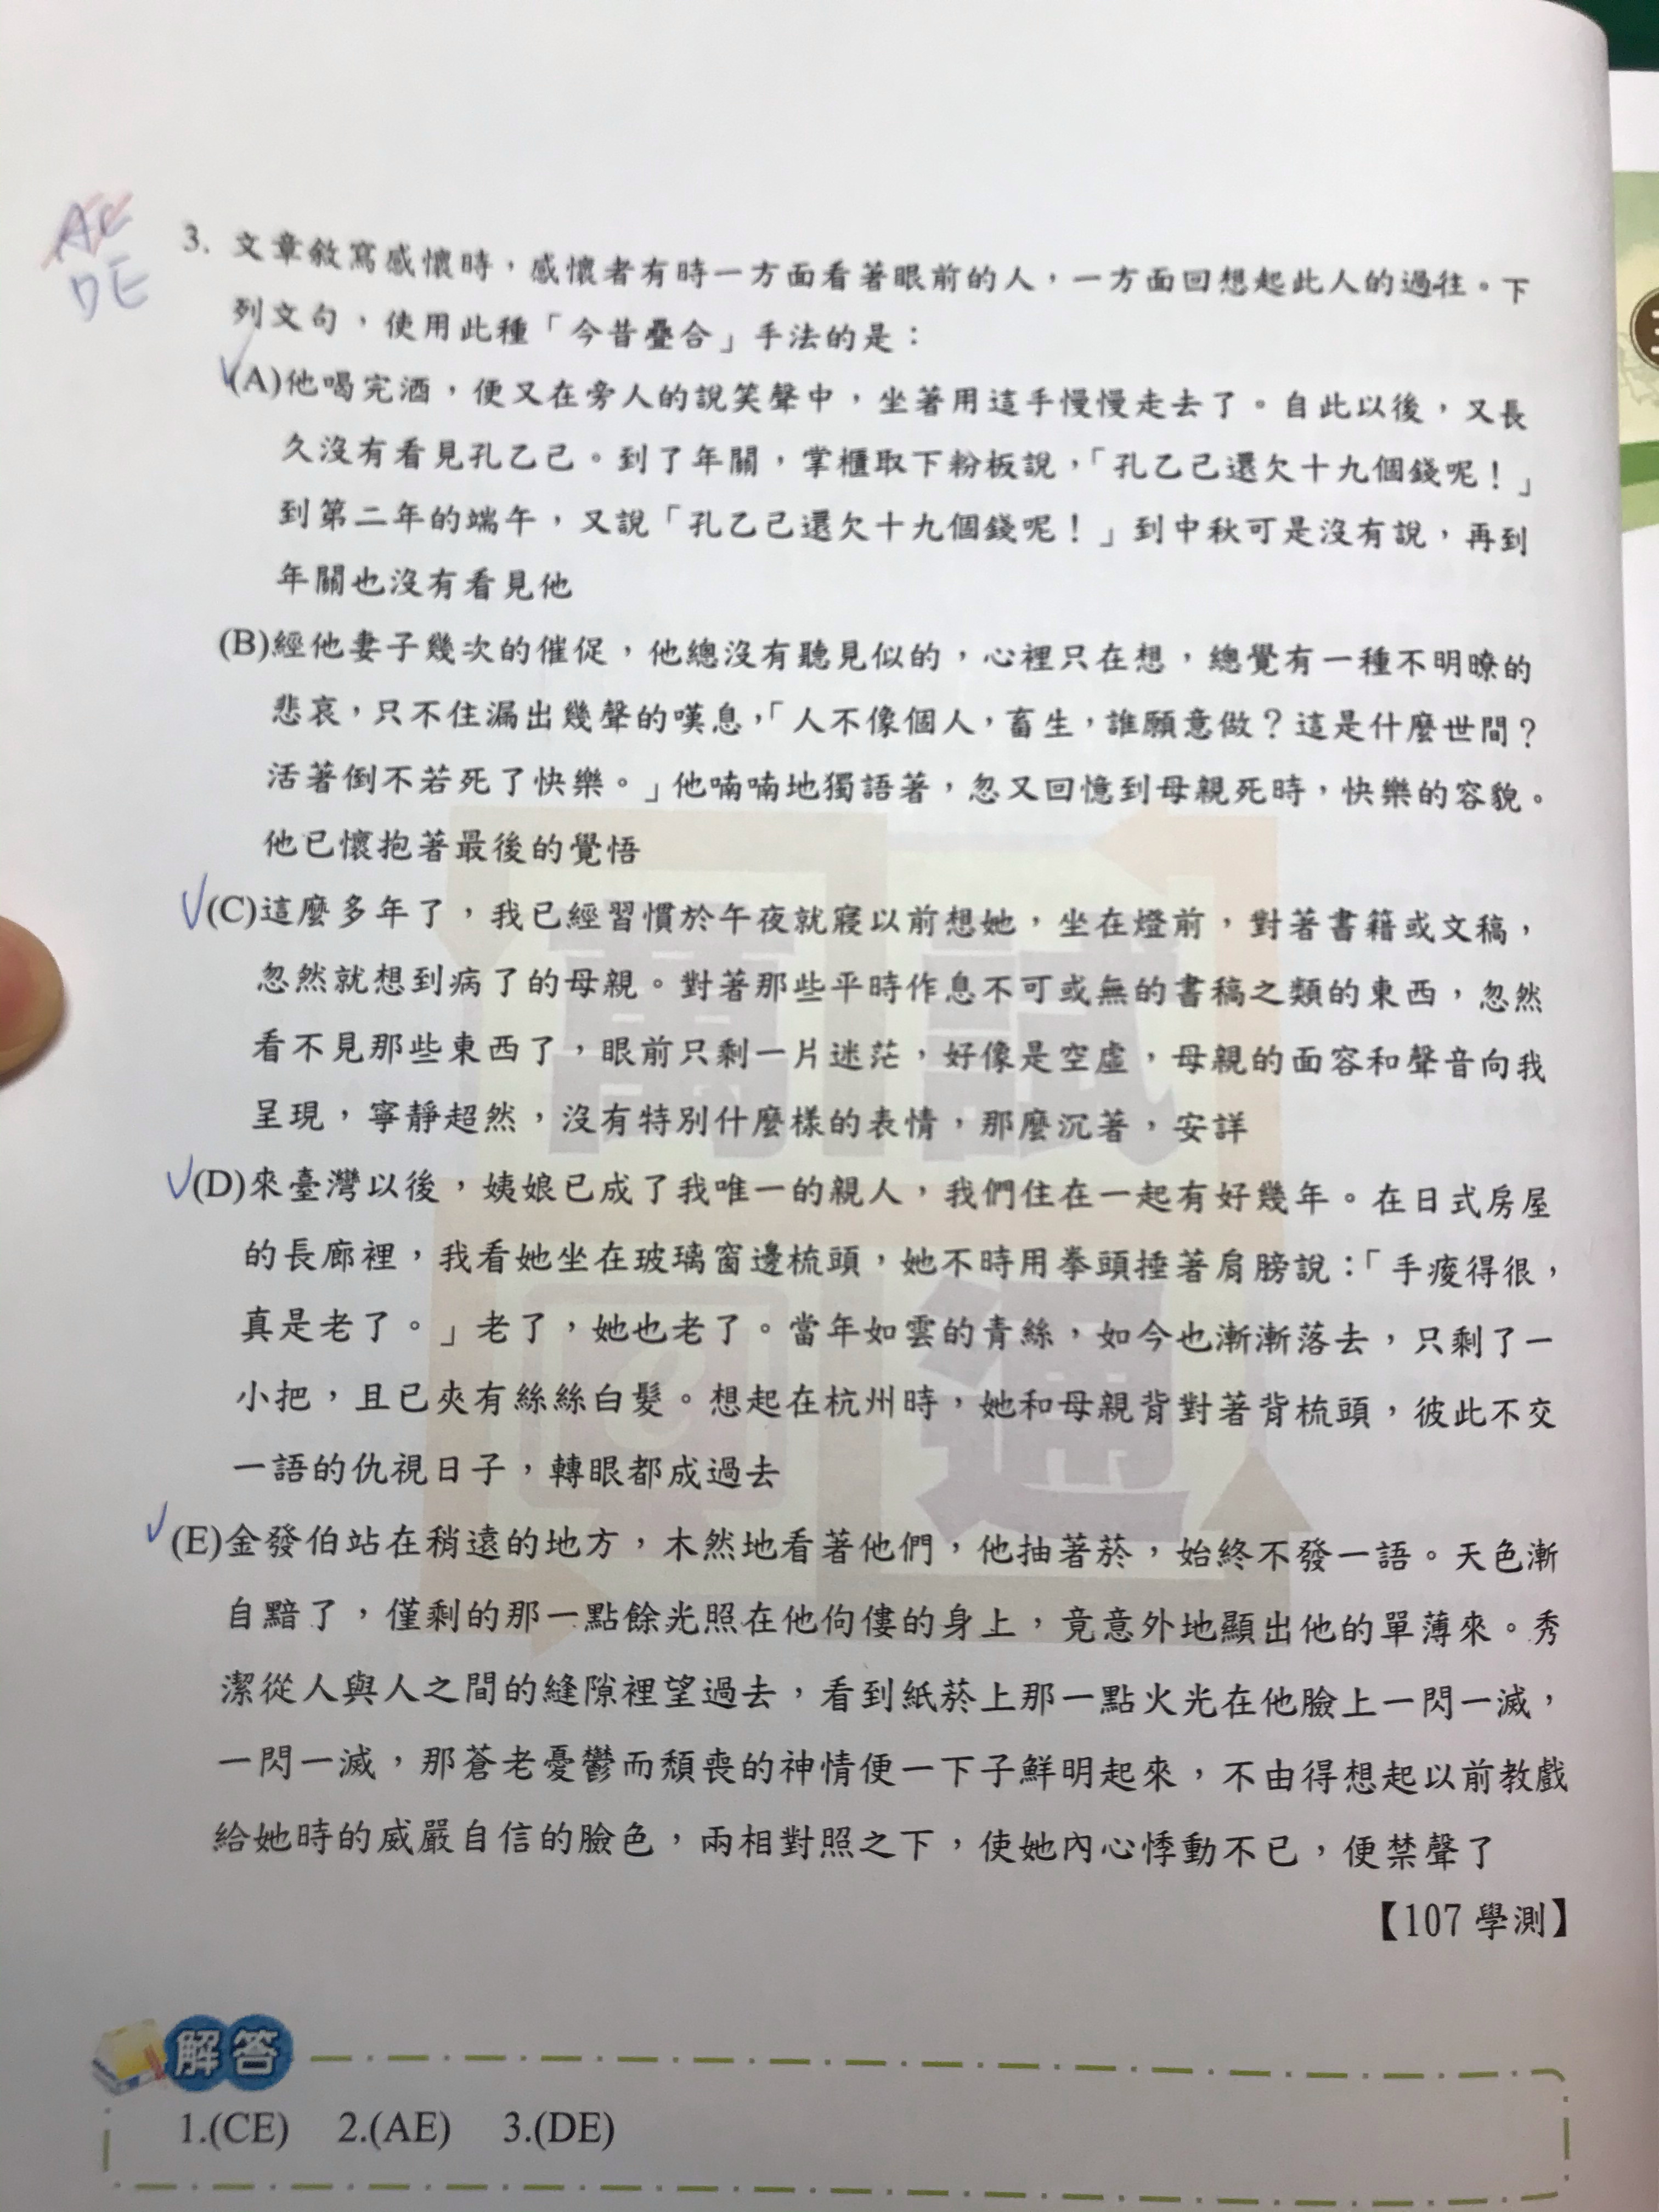 AC
DE
3. 文章敘寫感懷時，感懷者有時一方面看著眼前的人，一方面回想起此人的過往。下
列文句，使用此種「今昔疊合」手法的是：
(A)他喝完酒，便又在旁人的說笑聲中，坐著用這手慢慢走去了。自此以後，又長
久沒有看見孔乙己。到了年關，掌櫃取下粉板說，「孔乙己還欠十九個錢呢！」
到第二年的端午，又說「孔乙己還欠十九個錢呢！」到中秋可是沒有說，再到
年關也沒有看見他
(B)經他妻子幾次的催促，他總沒有聽見似的，心裡只在想，總覺有一種不明瞭的
悲哀，只不住漏出幾聲的嘆息，「人不像個人，畜生，誰願意做？這是什麼世間？
活著倒不若死了快樂。」他喃喃地獨語著，忽又回憶到母親死時，快樂的容貌。
他已懷抱著最後的覺悟
(C)這麼多年了，我已經習慣於午夜就寢以前想她，坐在燈前，對著書籍或文稿，
忽然就想到病了的母親。對著那些平時作息不可或無的書稿之類的東西，忽然
看不見那些東西了，眼前只剩一片迷茫，好像是空虛，母親的面容和聲音向我
呈現，寧靜超然，沒有特別什麼樣的表情，那麼沉著，安詳
(D)來臺灣以後，姨娘已成了我唯一的親人，我們住在一起有好幾年。在日式房屋
的長廊裡，我看她坐在玻璃窗邊梳頭，她不時用拳頭捶著肩膀說：「手痠得很，
真是老了。」老了，她也老了。當年如雲的青絲，如今也漸漸落去，只剩了一
小把，且已夾有絲絲白髮。想起在杭州時，她和母親背對著背梳頭，彼此不交
一語的仇視日子，轉眼都成過去
(E)金發伯站在稍遠的地方，木然地看著他們，他抽著菸，始終不發一語。天色漸
自黯了，僅剩的那一點餘光照在他佝僂的身上，竟意外地顯出他的單薄來。秀
潔從人與人之間的縫隙裡望過去，看到紙菸上那一點火光在他臉上一閃一滅，
一閃一滅，那蒼老憂鬱而頹喪的神情便一下子鮮明起來，不由得想起以前教戲
給她時的威嚴自信的臉色，兩相對照之下，使她內心悸動不已，便禁聲了
【107 學測】
解答
1.(CE) 2.(AE) 3.(DE)